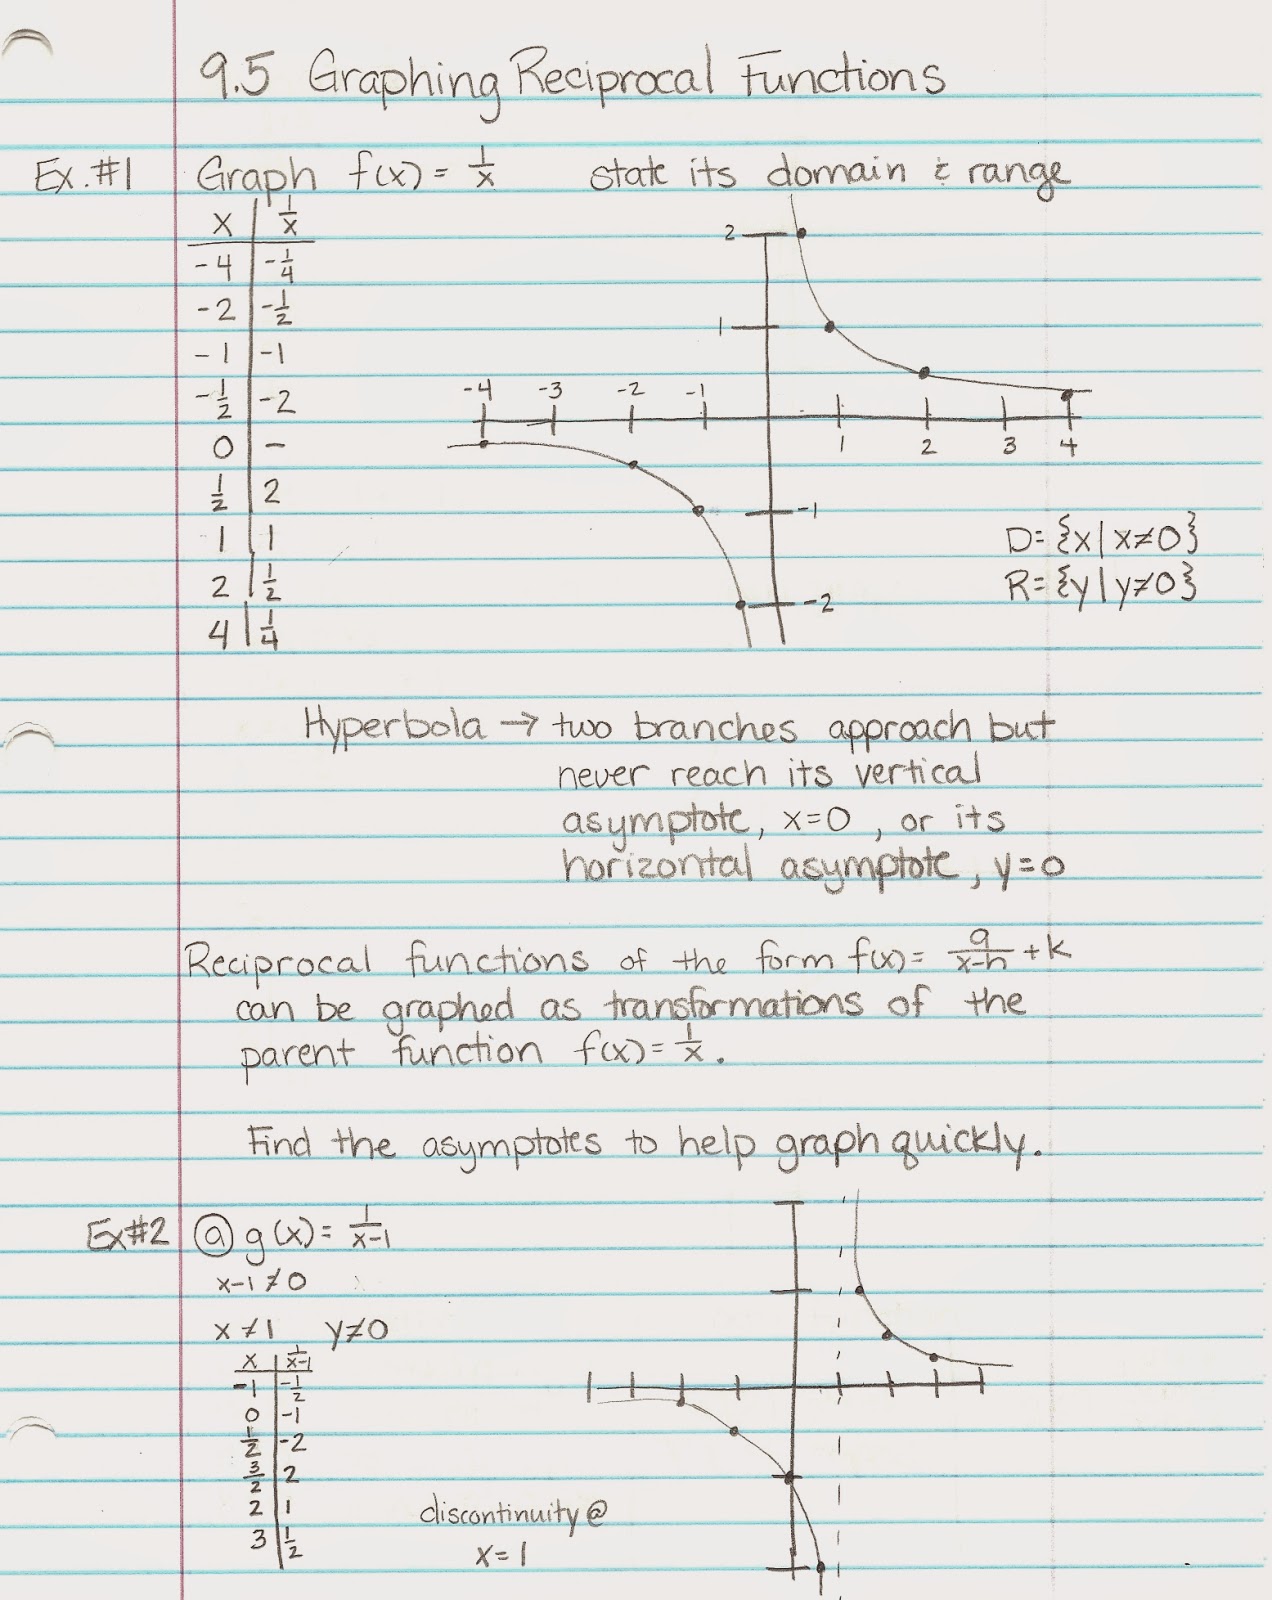 9.5 Graphing Reciprocal Functions
Ex. #1 Graph f(x) = 1/x state its domain & range
x | 1/x
-4 | -1/4
-2 | -1/2
-1 | -1
-1/2 | -2
0 | -
1/2 | 2
1 | 1
2 | 1/2
4 | 1/4
2
1
-4 -3 -2 -1
1 2 3 4
-1
-2
D= {x | x≠0}
R= {y | y≠0}
Hyperbola → two branches approach but
never reach its vertical
asymptote, x=0, or its
horizontal asymptote, y=0
Reciprocal functions of the form f(x)= a/(x-h) + k
can be graphed as transformations of the
parent function f(x)= 1/x.
Find the asymptotes to help graph quickly.
Ex#2 ⓐ g(x)= 1/(x-1)
x-1≠0
x≠1 y≠0
x | 1/(x-1)
-1 | -1/2
0 | -1
1/2 | -2
3/2 | 2
2 | 1
3 | 1/2
discontinuity @
x=1